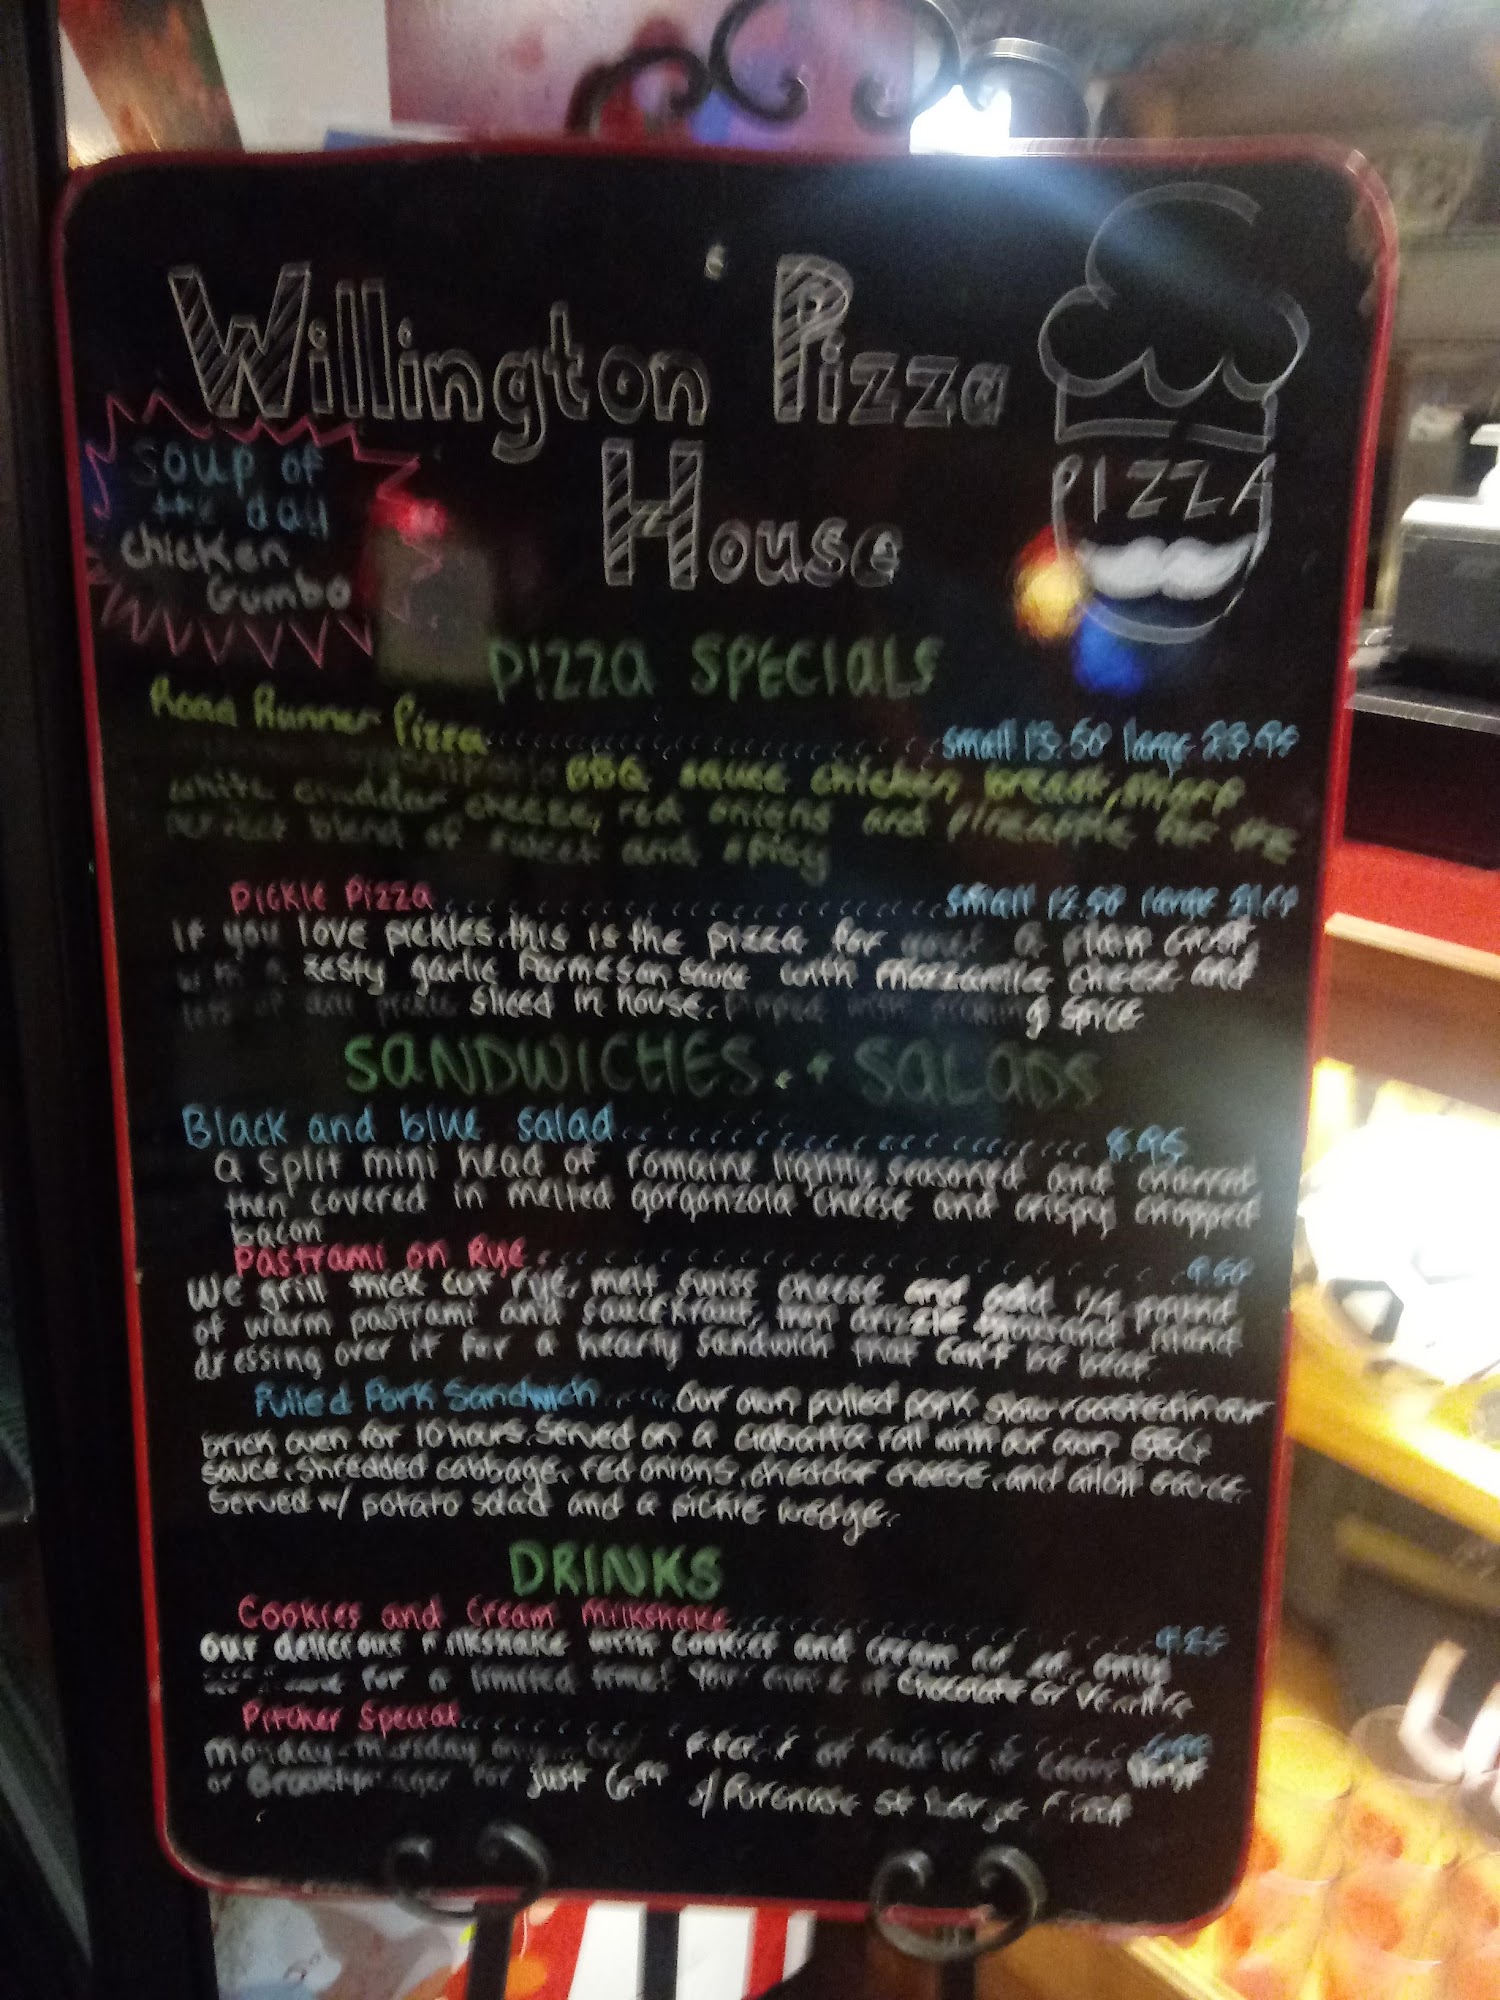 Willington Pizza
House
PIZZA
Soup of
the day
Chicken
Gumbo
Pizza Specials
Road Runner Pizza small large
BBQ sauce chicken breast, sharp
white cheddar cheese, red onions and pineapple for the
perfect blend of sweet and spicy
Pickle Pizza small 12.50 large
If you love pickles, this is the pizza for you! A plain crust
with a zesty garlic Parmesan sauce with mozzarella cheese and
lots of dill pickle sliced in house. spice
Sandwiches + Salads
Black and blue salad 8.95
A split mini head of romaine lightly seasoned and charred
then covered in melted gorgonzola cheese and crispy chopped
bacon
Pastrami on Rye 9.50
We grill thick cut rye, melt swiss cheese and add 1/4 pound
of warm pastrami and sauerkraut, then drizzle thousand island
dressing over it for a hearty sandwich that can't be beat.
Pulled Pork Sandwich Our own pulled pork slow roasted in our
brick oven for 10 hours. Served on a ciabatta roll with our own BBQ
sauce, shredded cabbage, red onions, cheddar cheese, and aioli sauce.
Served w/ potato salad and a pickle wedge.
Drinks
Cookies and Cream Milkshake
Our delicious milkshake with cookies and cream only
for a limited time! Your choice of chocolate or vanilla
Pitcher Special
Monday-Thursday only
or for just 6.99 w/ Purchase of Large